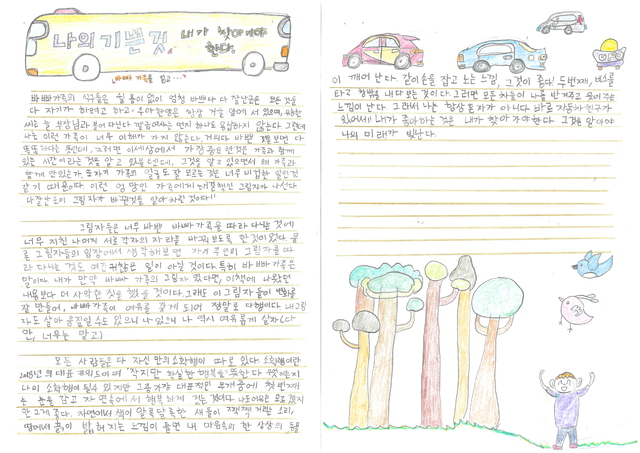 나의 기쁜 것 내가 찾아가야 한다.
'바빠 가족'을 읽고...
바빠가족의 식구들은 쉴 틈이 없이 엄청 바쁘다. 다 장난꾼은 모든 것을
다 자기가 하려고 하고,
씨는 늘
나는 이런 가족이 너무 이해가 가지 않는다.
똑똑하다는 뜻인데, 그러면 이 세상에서 가장 중요한 것은 가족과 함께
있는 시간이라는 것을 알고 있을텐데, 그것을 알고 있으면서 왜 가족과
함께 안 있은가, 또 자기 가족의 얼굴도 잘 모르는 것은 너무 비겁한 일인것
같기 때문이다. 이런 엉망인 가족에게 해결책인 그림자가 나선다.
그림자가 바뀐것을 알아차린 것이다!!
그림자들은 너무 바쁜 바빠가족을 따라 다니는 것에
너무 지친 나머지 서로 각자의 자리를 바꿔보도록 한 것이었다. 물
론 그림자들의 입장에서 생각해보면 자기 주인의 그림자를 따
라 다니는 것도 여간 귀찮은 일이 아닐 것이다. 특히 바빠가족은
말이다. 내가 만약 바빠 가족의 그림자였다면, 이 책에 나왔던
내용보다 더 사악한 짓을 했을 것이다. 그래도 이 그림자들이
잘 만들어, 바빠가족이 여유를 갖게 되어 정말로 다행이다. 내 그림
자도 살아 움직일 수도 있으니 나 역시 여유롭게 살자! (다
만, 너무는 말고.)
모든 사람들은 다 자신만의 소확행이 따로 있다. 소확행이란
2018년의 대표 키워드이며 '작지만 확실한 행복'을 뜻한다.
나의 소확행이 될 수 있게 그중 가장 대표적인 두개 중에 첫번째
는 눈을 감고 자연속에서 행복하게 있는 것이다.
안 그게 좋다. 자연에서 책이 알록달록한 새들이 짹짹 거리는 소리,
땅에서 흙이 밟혀지는 느낌이 들면 내 마음속의 한 상상의 문을
이 깨어난다. 같이 손을 잡고 노는 느낌, 그것이 좋다! 두번째, 버스를
타고 창밖을 내다보는 것이다. 그러면 모든 차들이 나를 반겨주고 웃어주는
느낌이 난다. 그래서 나는 항상 혼자가 아니다. 바로 자동차 친구가
있어서! 내가 좋아하는 것은 내가 찾아가야 한다. 그것을 알아야
나의 미래가 빛난다.